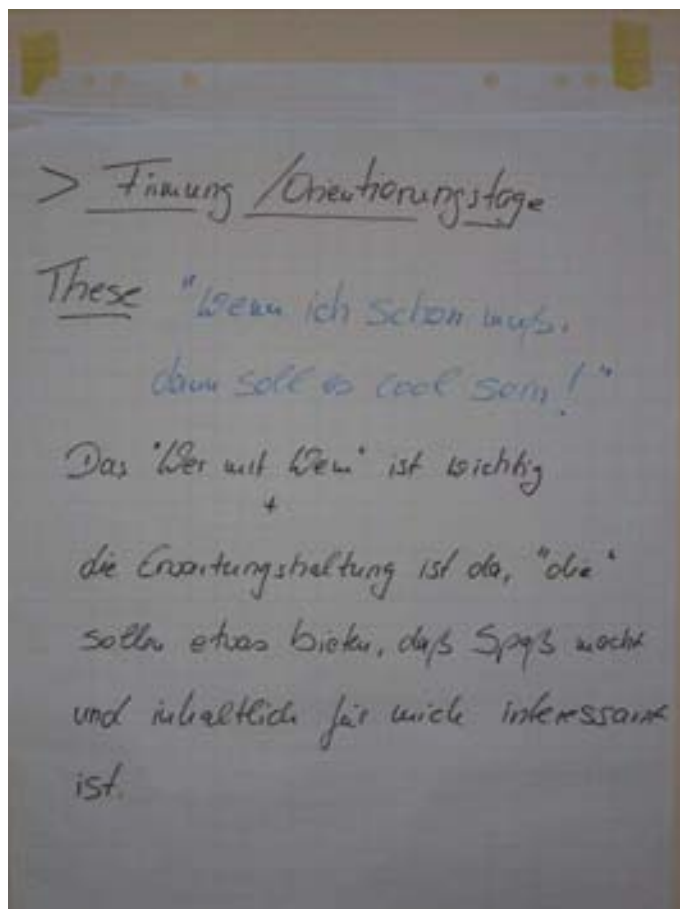 > Firmung / Orientierungstage
These "Wenn ich schon muß,
dann soll es cool sein!"
Das "Wer mit Wem" ist wichtig
+
die Erwartungshaltung ist da, "die"
sollen etwas bieten, daß Spaß macht
und inhaltlich für mich interessant
ist.